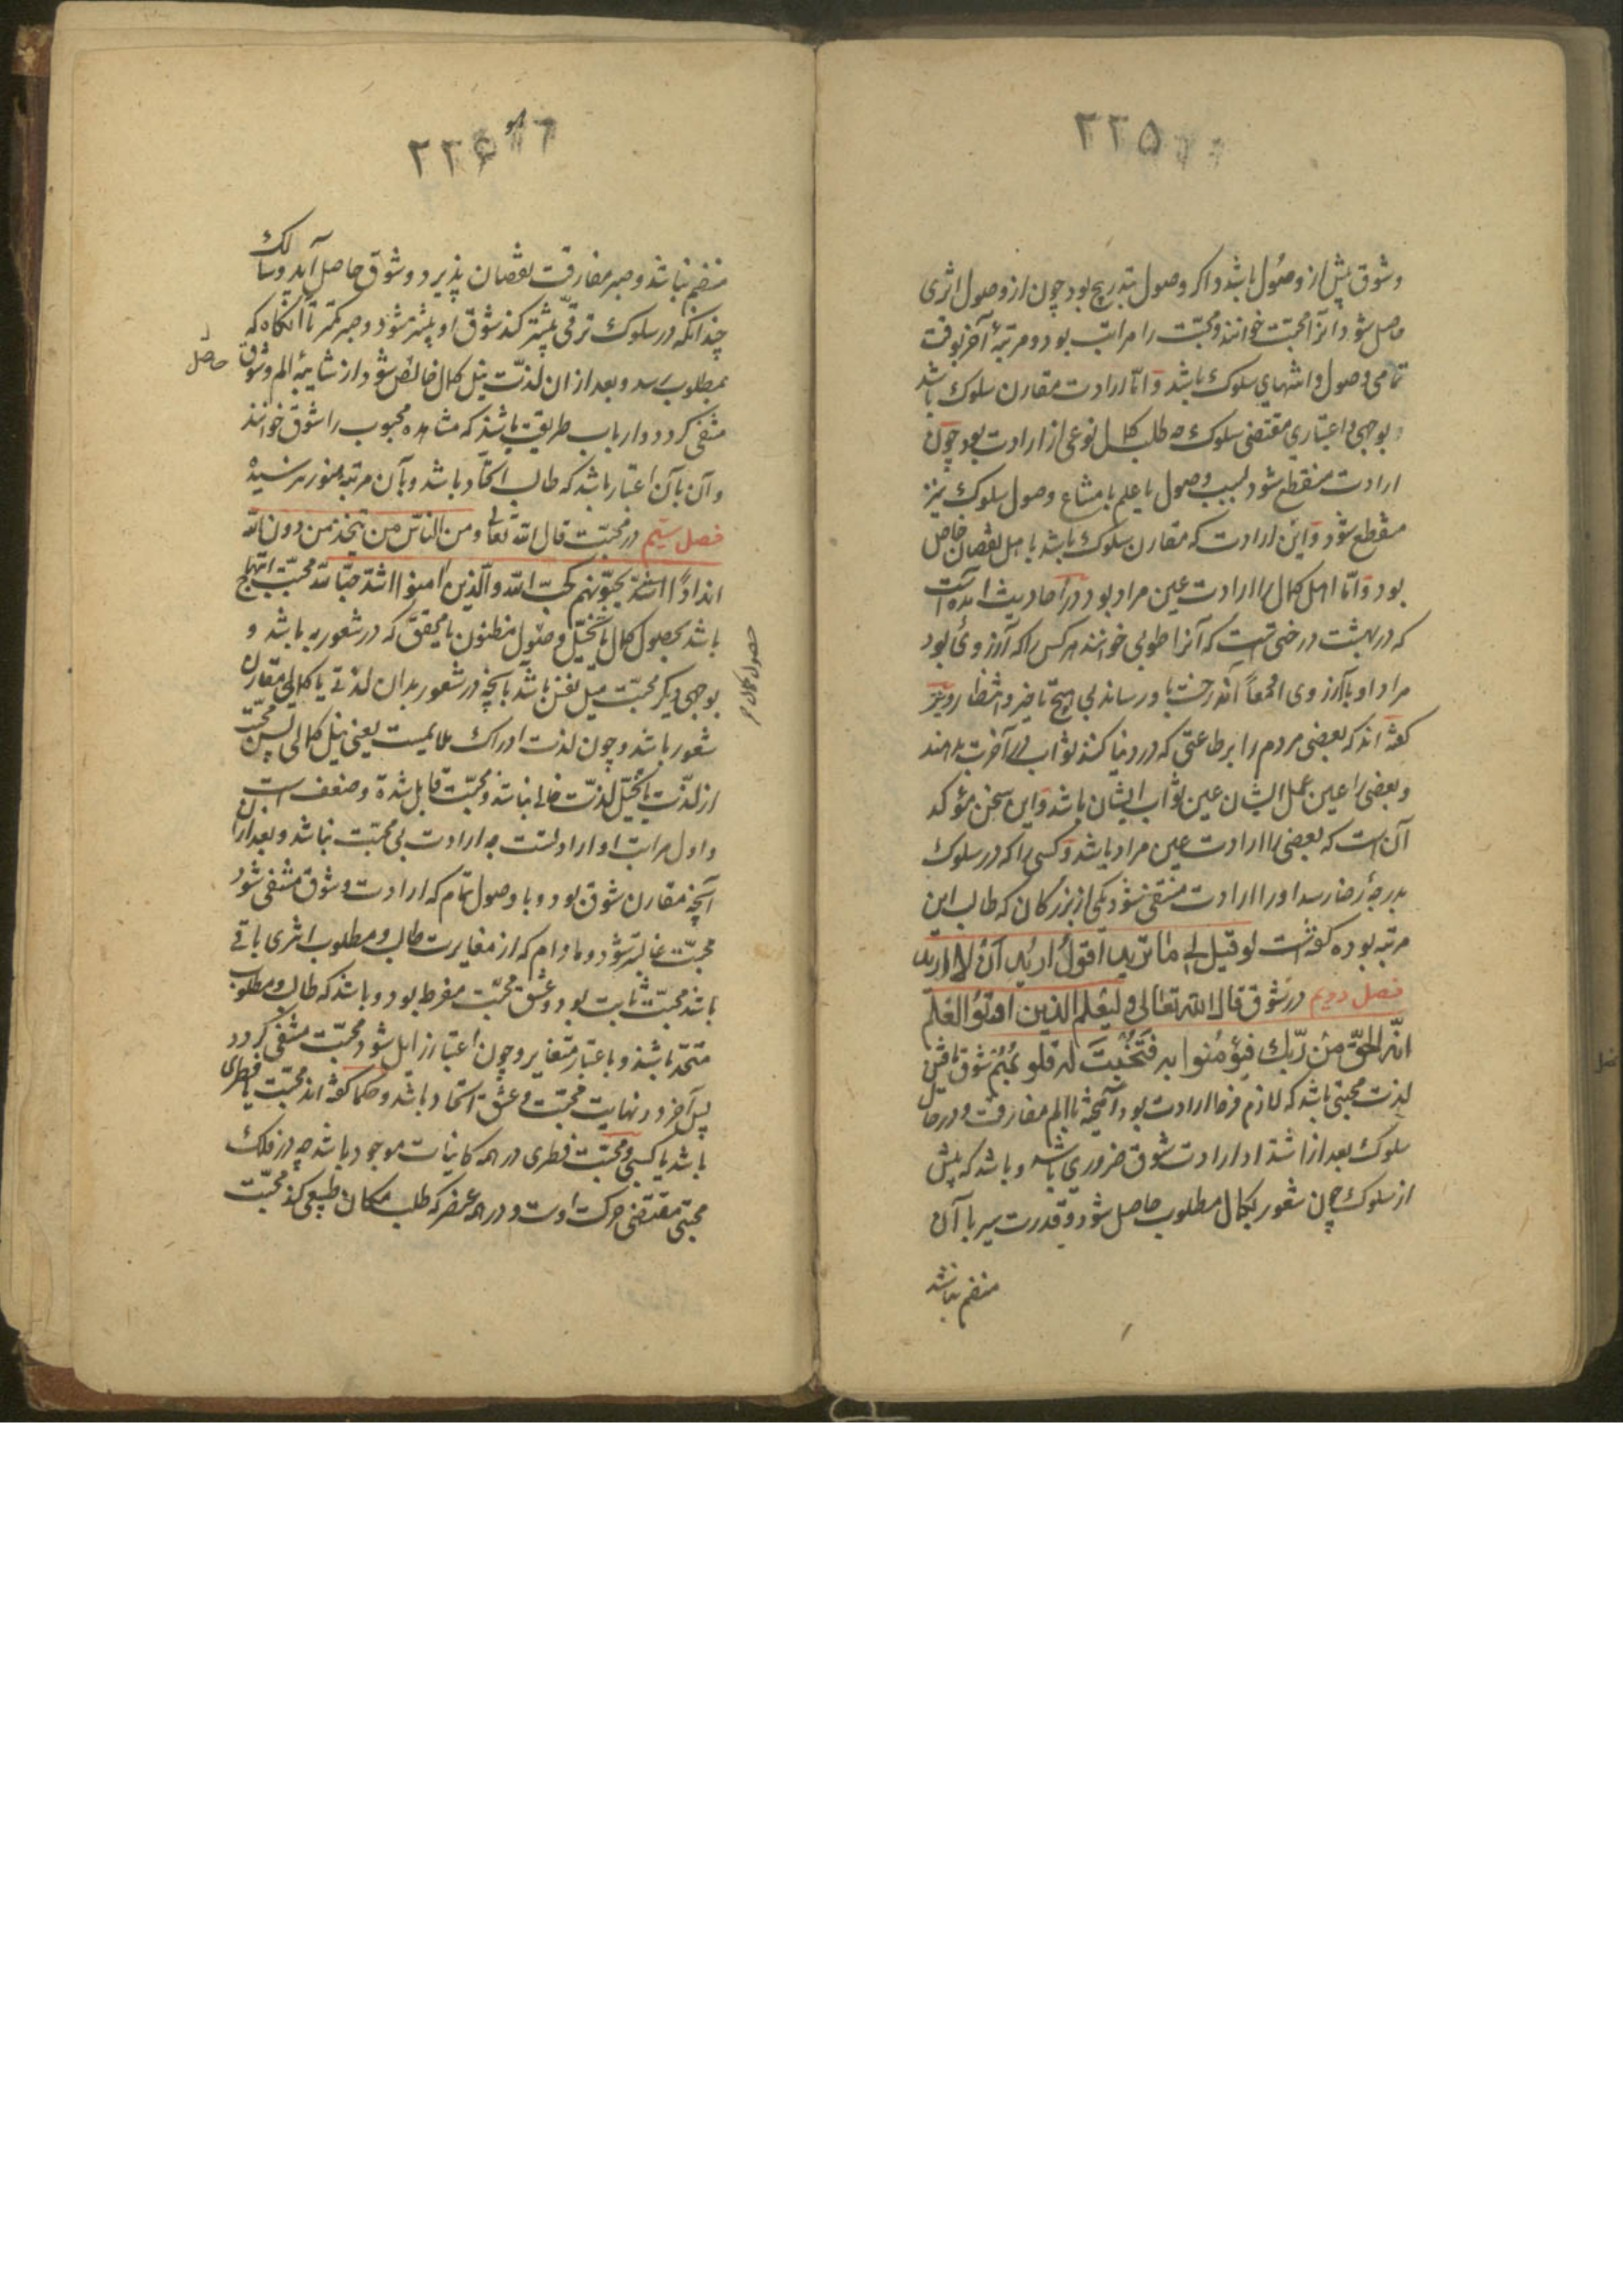 ۲۲۵
و شوق پیش از وصول باشد و اگر وصول بتدریج بود چون از وصول اثری
حاصل شود آنرا محبّت خوانند و محبّت را مراتب بود و مرتبهٔ آخر بوقت
تمامی وصول و انتهای سلوک باشد و امّا ارادت مقارن سلوک باشد
و بوجهی و اعتباری مقتضی سلوک چه طلب کمال نوعی از ارادت بود چون
ارادت منقطع شود بسبب وصول یا علم بامتناع وصول سلوک نیز
منقطع شود و این ارادت که مقارن سلوک باشد باهل نقصان خاص
بود و امّا اهل کمال را ارادت عین مراد بود و در احادیث آمده است
که در بهشت درختی است که آنرا طوبی خوانند هر کس را که آرزوئی بود
مراد او با آرزوی او معاً آن درخت باو رساند بی هیچ تاخیر و انتظار و نیز
گفته اند که بعضی مردم را بر طاعتی که در دنیا کنند ثواب در آخرت بدهند
و بعضی را عین عمل ایشان عین ثواب ایشان باشد و این سخن مؤکد
آن است که بعضی را ارادت عین مراد باشد و کسی را که در سلوک
بدرجهٔ رضا رسد او را ارادت منتفی شود یکی از بزرگان که طالب این
مرتبه بوده گفته است لو قیل لی ما ترید اقول ارید ان لا ارید
فصل دویم در شوق قال الله تعالی و لیعلم الذین اوتوا العلم
انّه الحقّ من ربّک فیؤمنوا به فتخبت له قلوبهم شوق یافتن
لذت محبتی باشد که لازم فرط ارادت بود آمیخته با الم مفارقت و در حال
سلوک بعد از اشتداد ارادت شوق ضروری باشد و باشد که پیش
از سلوک چون شعور بکمال مطلوب حاصل شود و قدرت سیر با آن
منضم نباشد
۲۲۶
منضم نباشد و صبر مفارقت نقصان پذیرد و شوق حاصل آید و سالک
چندانکه در سلوک ترقّی بیشتر کند شوق او بیشتر شود و صبر کمتر تا آنگاه که
بمطلوب رسد و بعد از ان لذّت نیل کمال خالص شود از شایبهٔ الم و شوق
حاصل
منتفی گردد و ارباب طریقت باشد که مشاهده محبوب را شوق خوانند
و آن بآن اعتبار باشد که طالب اتحّاد باشد و بآن مرتبه هنوز نرسیده
فصل سیم در محبّت قال الله تعالی و من النّاس من یتخذ من دون الله
انداداً یحبّونهم کحبّ الله و الّذین آمنوا اشد حبّا لله محبّت ابتهاج
باشد بحصول کمال یا تخیّل وصول مظنون یا محقّق که در شعور به باشد و
حصول کمال
بوجهی دیگر محبّت میل نفس باشد بآنچه در شعور بدان لذتی یا کمالی مقارن
شعور باشد و چون لذت ادراک ملایمست یعنی نیل کمالی پس محبّت
از لذّت یا تخیّل لذّت خالی نباشد و محبّت قابل شدة و ضعف است
و اول مراتب او ارادتست چه ارادت بی محبّت نباشد و بعد از ان
آنچه مقارن شوق بود و با وصول تمام که ارادت و شوق منتفی شود
محبّت غالبتر شود و مادام که از مغایرت طالب و مطلوب اثری باقی
باشد محبّت ثابت بود و عشق محبّت مفرط بود و باشد که طالب و مطلوب
متحّد باشد و باعتبار متغایر و چون اعتبار زایل شود محبّت منتفی گردد
پس آخر و نهایت محبّت و عشق اتحّاد باشد و حکما گفته اند محبّت یا فطری
باشد یا کسبی و محبّت فطری در همه کاینات موجود باشد چه در فلک
محبّتی مقتضی حرکت اوست و در هر عنصر که طلب مکان طبیعی کند محبّت